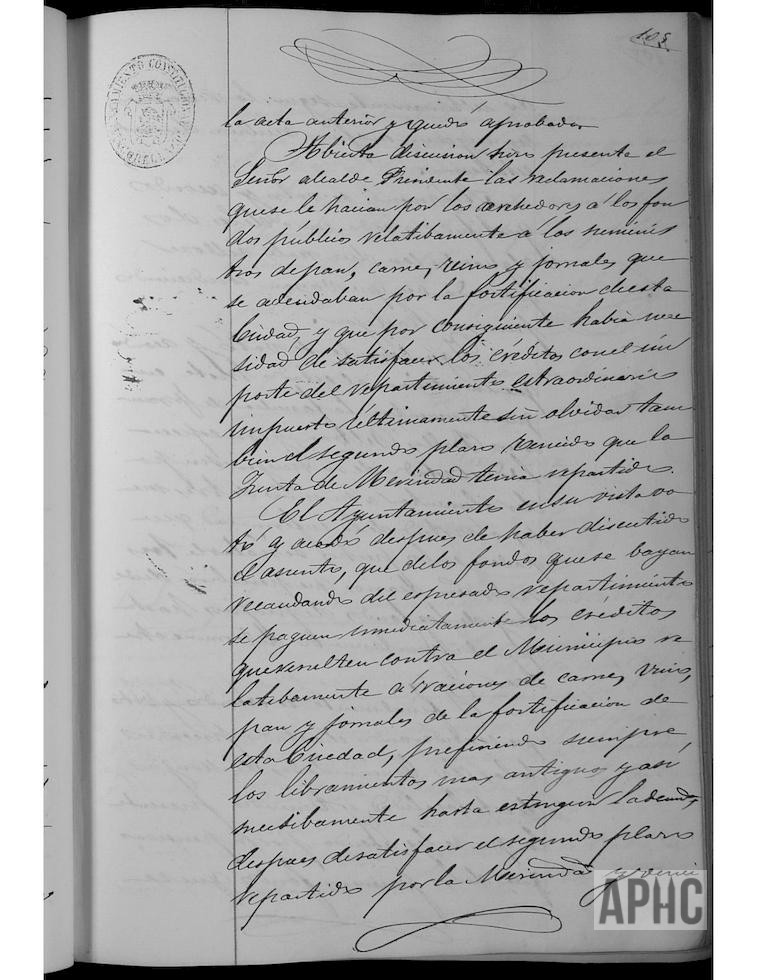 108
AYUNTAMIENTO CONSTITUCIONAL
la acta anterior y quedó aprobada.
Abierta discusion hizo presente el
Señor alcalde Presidente las reclamaciones
que se le hacian por los acrehedores á los fon
dos públicos relatibamente á los suminis
tros de pan, carne, vino, y jornales que
se adeudaban por la fortificacion de esta
Ciudad, y que por consiguiente habia nece
sidad de satisfacer los créditos con el im
porte del repartimiento estraordinario
impuesto últimamente sin olvidar tam
bien el segundo plazo vencido que la
Junta de Merindad tenia repartido.
El Ayuntamiento en su vista vo
tó y acordó despues de haber discutido
el asunto, que de los fondos que se bayan
recaudando del espresado repartimiento
se paguen inmediatamente los créditos
que resulten contra el Municipio re
latibamente á raciones de carne, vino,
pan y jornales de la fortificacion de
esta Ciudad, prefiriendo siempre
los libramientos mas antiguos y asi
sucesibamente hasta estinguir la deuda,
despues de satisfacer el segundo plazo
repartido por la Merindad y venci
APHC